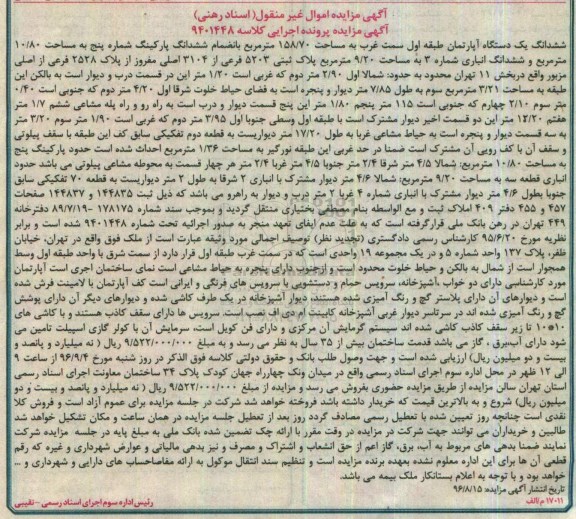 آگهی مزایده اموال غیر منقول( اسناد رهنی)
آگهی مزایده پرونده اجرایی کلاسه ۹۴۰۱۴۴۸
ششدانگ یک دستگاه آپارتمان طبقه اول سمت غرب به مساحت ۱۵۸/۷۰ مترمربع بانضمام ششدانگ پارکینگ شماره پنج به مساحت ۱۰/۸۰
مترمربع و ششدانگ انباری شماره ۳ به مساحت ۹/۲۰ مترمربع پلاک ثبتی ۵۲۰۳ فرعی از ۳۱۰۴ اصلی مفروز از پلاک ۲۵۲۸ فرعی از اصلی
مزبور واقع دربخش ۱۱ تهران محدود به حدود: شمالا اول ۲/۹۰ متر دوم که غربی است ۱/۲۰ متر این در قسمت درب و دیوار است به بالکن این
طبقه به مساحت ۳/۲۱ مترمربع سوم به طول ۷/۸۵ متر دیوار و پنجره است به فضای حیاط خلوت شرقا اول ۴/۲۰ متر دوم که جنوبی است ۰/۴۰
متر سوم ۲/۱۰ چهارم که جنوبی است ۱۱۵ متر پنجم ۱/۸۰ متر این پنج قسمت دیوار و درب است به راه رو و راه پله مشاعی ششم ۱/۷ متر
هفتم ۱۲/۲۰ متر این دو قسمت اخیر دیوار مشترک است با طبقه اول وسطی جنوبا اول ۳/۹۵ متر دوم که غربی است ۱/۹۰ متر سوم ۳/۲۰ متر
به سه قسمت دیوار و پنجره است به حیاط مشاعی غربا به طول ۱۷/۲۰ متر دیواریست به قطعه دوم تفکیکی سابق کف این طبقه با سقف پیلوتی
و سقف آن با کف رویی آن مشترک است ضمنا در حد غربی این طبقه نورگیر به مساحت ۱/۳۶ مترمربع احداث شده است حدود پارکینگ پنج
به مساحت ۱۰/۸۰ مترمربع: شمالا ۴/۵ متر شرقا ۲/۴ متر جنوبا ۴/۵ متر غربا ۲/۴ متر هر چهار قسمت به محوطه مشاعی پیلوتی می باشد حدود
انباری قطعه سه به مساحت ۹/۲۰ مترمربع: شمالا ۴/۶ متر دیوار مشترک با انباری ۲ شرقا به طول ۲ متر دیواریست به قطعه ۷۰ تفکیکی سابق
جنوبا بطول ۴/۶ متر دیوار مشترک با انباری شماره ۴ غربا ۲ متر درب و دیوار به راهرو می باشد که ذیل ثبت ۱۴۴۸۳۵ و ۱۴۴۸۳۷ صفحات
۴۵۷ و ۴۵۵ دفتر ۴۰۹ املاک ثبت و مع الواسطه بنام مصطفی بختیاری منتقل گردید و بموجب سند شماره ۱۷۸۱۷۵ -۸۹/۷/۱۹ دفترخانه
۴۴۹ تهران در رهن بانک ملی قرارگرفته است که به علت عدم ایفای تعهد منجر به صدور اجرائیه تحت شماره ۹۴۰۱۴۴۸ شده است و برابر
نظریه مورخ ۹۵/۶/۲۰ کارشناس رسمی دادگستری (تجدید نظر) توصیف اجمالی مورد وثیقه عبارت است از ملک فوق واقع در تهران، خیابان
ظفر، پلاک ۱۳۷ واحد شماره ۵ و در یک مجموعه ۱۹ واحدی است که در سمت غرب طبقه اول قرار دارد از سمت شرق با واحد طبقه اول وسط
همجوار است از شمال به بالکن و حیاط خلوت محدود است و ازجنوب دارای پنجره به حیاط مشاعی است نمای ساختمان اجری است آپارتمان
مورد کارشناسی دارای دو خواب آشپزخانه، سرویس حمام و دستشویی با سرویس های فرنگی و ایرانی است کف آپارتمان با لامینت فرش شده
است و دیوارهای آن دارای پلاستر گچ و رنگ آمیزی شده هستند، دیوار آشپزخانه در یک طرف کاشی شده و دیوارهای دیگر آن دارای پوشش
گچ و رنگ آمیزی شده اند در سرتاسر دیوار غربی آشپزخانه کابینت ام دی اف نصب است. سرویس ها دارای سقف کاذب هستند و با کاشی های
۱۰*۱۰ تا زیر سقف کاذب کاشی شده اند سیستم گرمایش آن مرکزی و دارای فن کویل است، سرمایش آن با کولر گازی اسپیلت تامین می
شود دارای آب،برق ، گاز می باشد قدمت ساختمان بیش از ۳۵ سال به نظر می رسد و به مبلغ ۹/۵۲۲/۰۰۰/۰۰۰ ریال ( نه میلیارد و پانصد و
بیست و دو میلیون ریال) ارزیابی شده است و جهت وصول طلب بانک و حقوق دولتی کلاسه فوق الذکر در روز شنبه مورخ ۹۶/۹/۴ از ساعت ۹
الی ۱۲ ظهر در محل اداره سوم اجرای اسناد رسمی واقع در میدان ونک چهارراه جهان کودک پلاک ۳۴ ساختمان معاونت اجرای اسناد رسمی
استان تهران سالن مزایده از طریق مزایده حضوری بفروش می رسد و مزایده از مبلغ ۹/۵۲۲/۰۰۰/۰۰۰ ریال ( نه میلیارد و پانصد و بیست و دو
میلیون ریال) شروع و به بالاترین قیمت که خریدار داشته باشد فروخته خواهد شد شرکت در جلسه مزایده برای عموم آزاد است و فروش کلا
نقدی است چنانچه روز تعیین شده با تعطیل رسمی مصادف گردد روز بعد از تعطیل جلسه مزایده در همان ساعت و مکان تشکیل خواهد شد
طالبین و خریداران می توانند جهت شرکت در مزایده در وقت مقرر با ارائه چک تضمین شده بانک ملی به مبلغ پایه در جلسه مزایده شرکت
نمایند ضمنا بدهی های مربوط به آب، برق، گاز اعم از حق انشعاب و اشتراک و مصرف و نیز بدهی مالیاتی و عوارض شهرداری و غیره که رقم
قطعی آن ها برای این اداره معلوم نشده بعهده برنده مزایده است و تنظیم سند انتقال موکول به ارائه مفاصاحساب های دارایی و شهرداری و ...
خواهد بود و با توجه به اعلام بستانکار ملک بیمه می باشد.
تاریخ انتشار آگهی مزایده: ۹۶/۸/۱۵
۱۷۰۱۱ م الف
رئیس اداره سوم اجرای اسناد رسمی - نقیبی